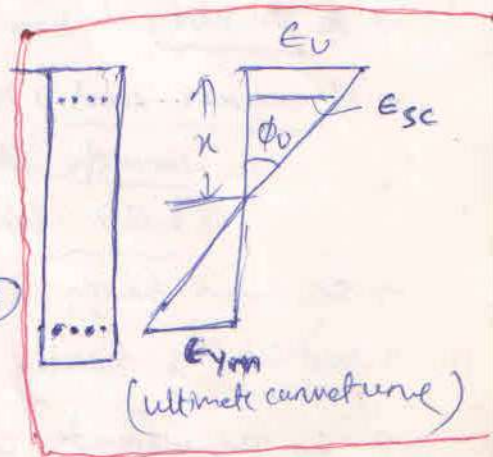 ϵᵤ
ϵsc
x
ϕᵤ
(ultimate curvature)